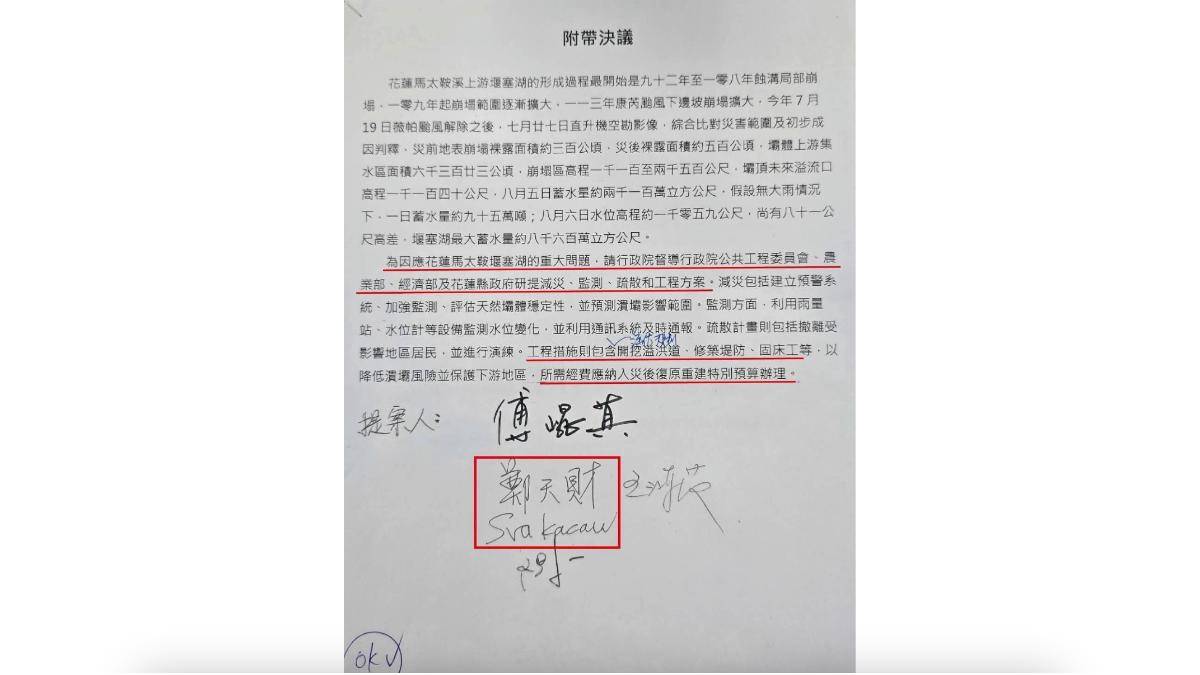 附帶決議
花蓮馬太鞍溪上游堰塞湖的形成過程最開始是九十二年至一零八年蝕溝局部崩
塌，一零九年起崩塌範圍逐漸擴大，一一三年康芮颱風下邊坡崩塌擴大，今年7月
19日薇帕颱風解除之後，七月廿七日直升機空勘影像，綜合比對災害範圍及初步成
因判釋，災前地表崩塌裸露面積約三百公頃，災後裸露面積約五百公頃，壩體上游集
水區面積六千三百廿三公頃，崩塌區高程一千一百至兩千五百公尺，壩頂未來溢流口
高程一千一百四十公尺，八月五日蓄水量約兩千一百萬立方公尺，假設無大雨情況
下，一日蓄水量約九十五萬噸；八月六日水位高程約一千零五九公尺，尚有八十一公
尺高差，堰塞湖最大蓄水量約八千六百萬立方公尺。
為因應花蓮馬太鞍堰塞湖的重大問題，請行政院督導行政院公共工程委員會、農
業部、經濟部及花蓮縣政府研提減災、監測、疏散和工程方案。減災包括建立預警系
統、加強監測、評估天然壩體穩定性，並預測潰壩影響範圍。監測方面，利用雨量
站、水位計等設備監測水位變化，並利用通訊系統及時通報。疏散計畫則包括撤離受
影響地區居民，並進行演練。工程措施則包含開挖溢洪道、修築堤防、固床工等，以
降低潰壩風險並保護下游地區，所需經費應納入災後復原重建特別預算辦理。
提案人：
傅崐萁
鄭天財
Sra Kacaw
OK